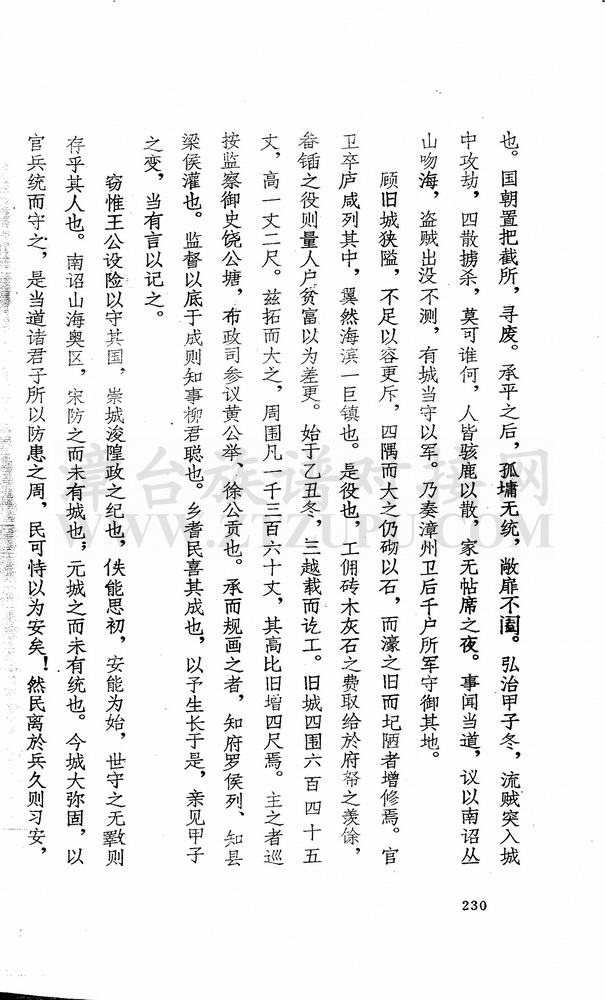 也。国朝置把截所，寻废。承平之后，孤墉无统，敞扉不圉。弘治甲子冬，流贼突入城
中攻劫，四散掳杀，莫可谁何，人皆骇鹿以散，家无帖席之夜。事闻当道，议以南诏丛
山吻海，盗贼出没不测，有城当守以军。乃奏漳州卫后千户所军守御其地。
顾旧城狭隘，不足以容更斥，四隅而大之仍砌以石，而濠之旧而圮陋者增修焉。官
卫卒庐咸列其中，翼然海滨一巨镇也。是役也，工佣砖木灰石之费取给於府帑之羡馀，
畚锸之役则量人户贫富以为差更。始于乙丑冬，三越载而讫工。旧城四围六百四十五
丈，高一丈二尺。兹拓而大之，周围凡一千三百六十丈，其高比旧增四尺焉。主之者巡
按监察御史饶公塘，布政司参议黄公举、徐公贡也。承而规画之者，知府罗侯列、知县
梁侯灌也。监督以底于成则知事柳君聪也。乡耆民喜其成也，以予生长于是，亲见甲子
之变，当有言以记之。
窃惟王公设险以守其国，崇城浚隍政之纪也，佚能思初，安能为始，世守之无斁则
存乎其人也。南诏山海奥区，宋防之而未有城也；元城之而未有统也。今城大弥固，以
官兵统而守之，是当道诸君子所以防患之周，民可恃以为安矣！然民离於兵久则习安，
230
漳台族谱对接网
WWW.ZTZUPU.COM